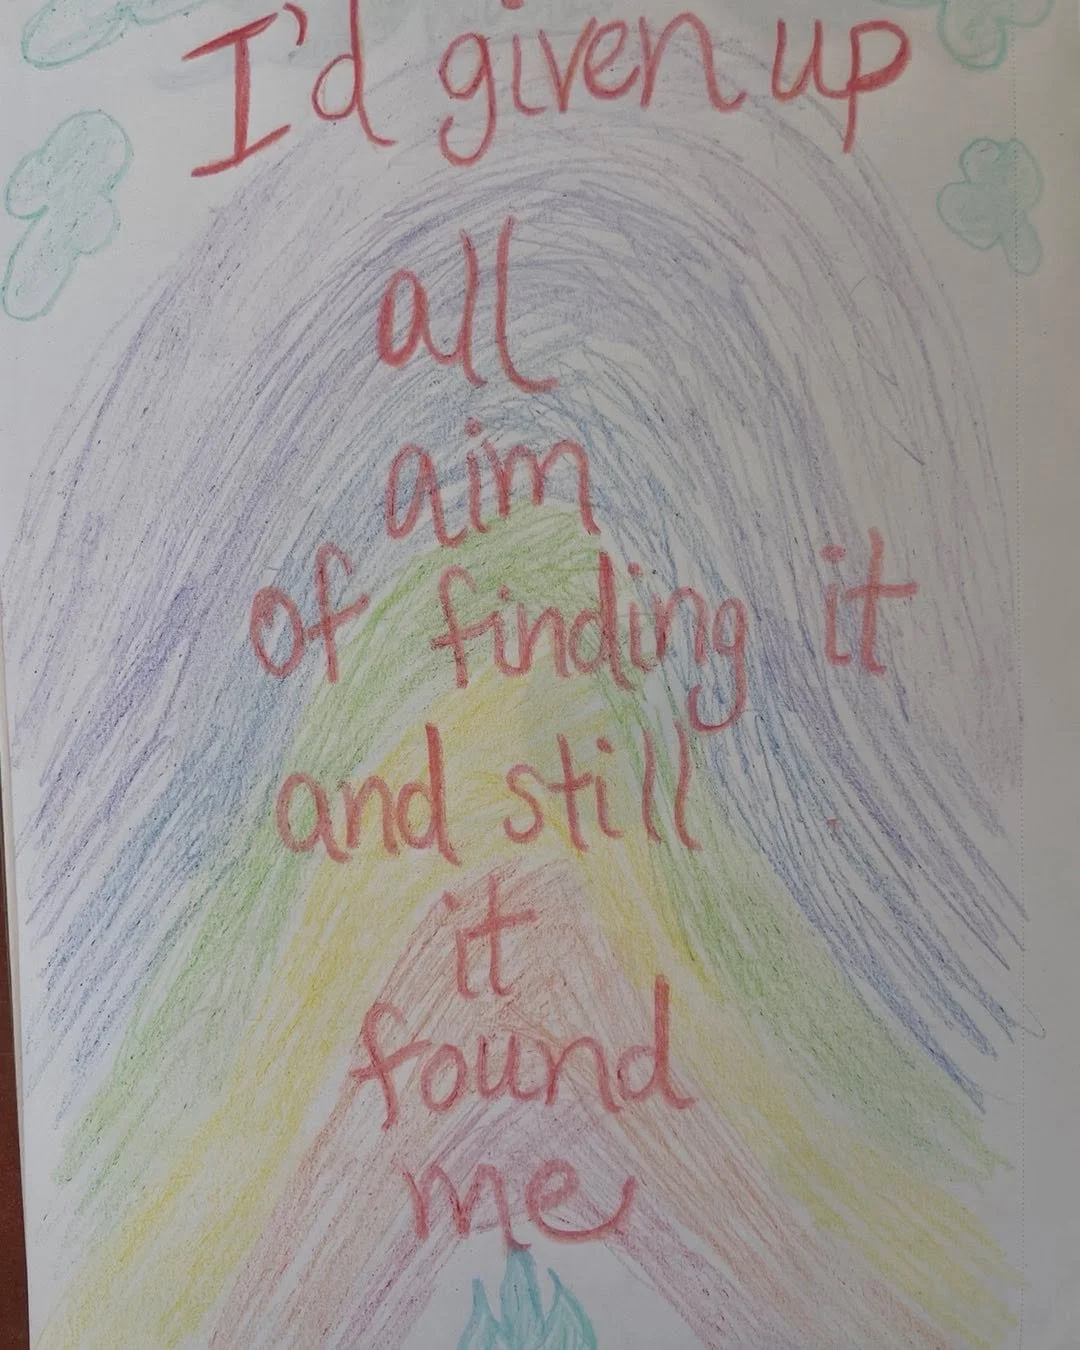 I'd given up
all
aim
of finding it
and still
it
found
me